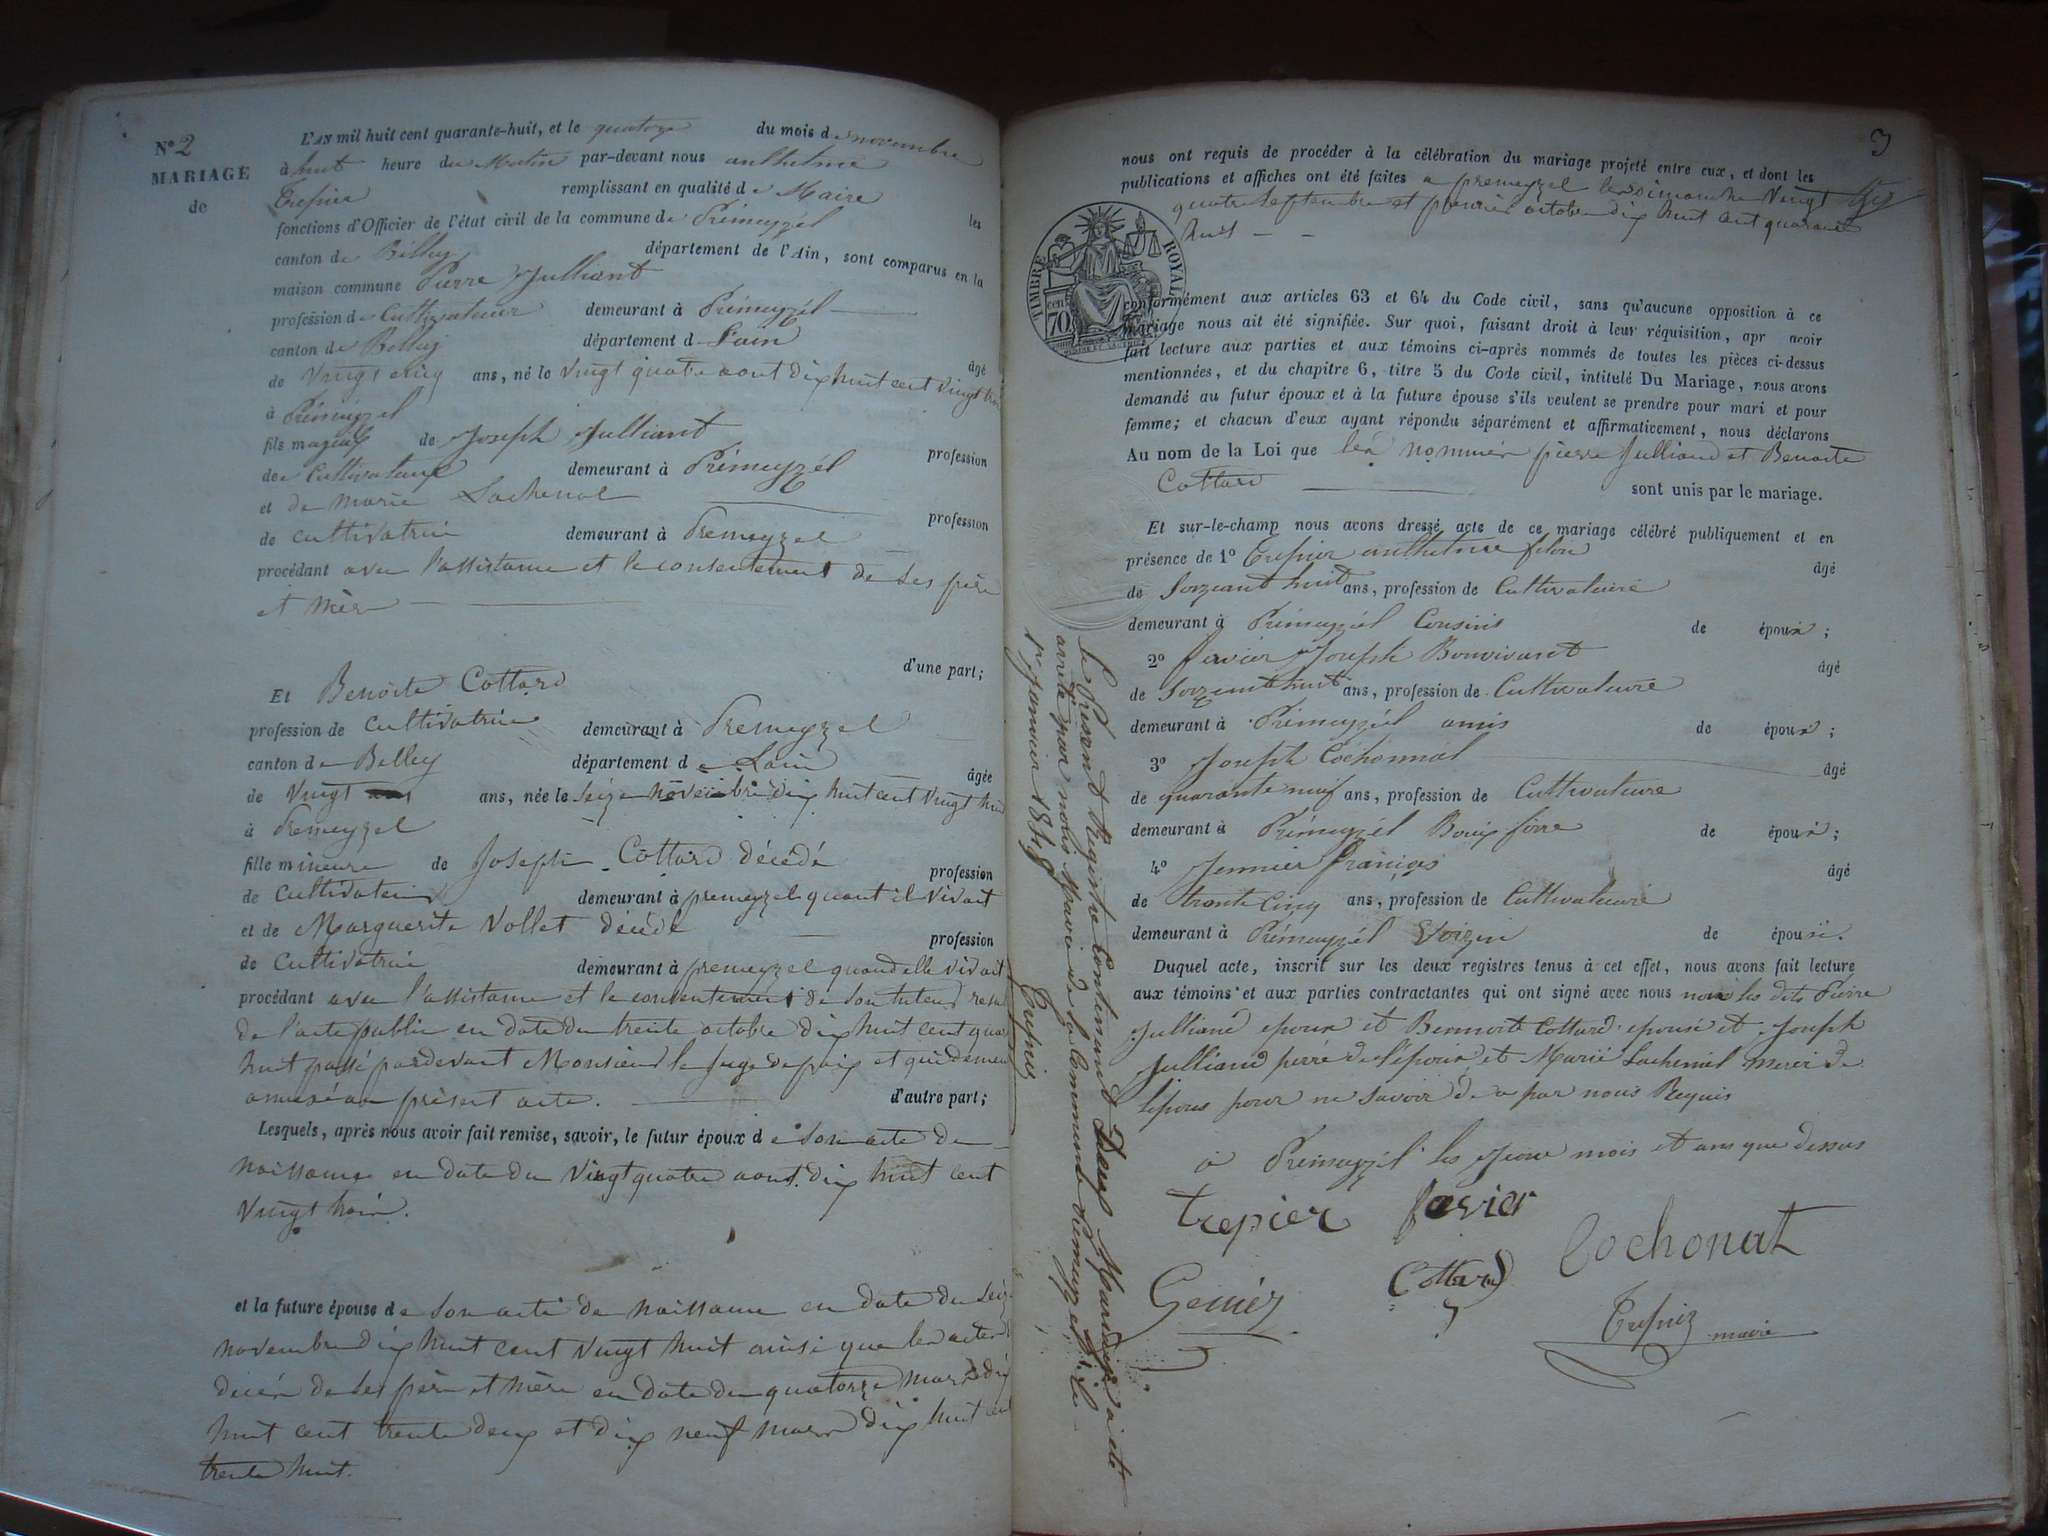 N° 2
MARIAGE
de
L'AN mil huit cent quarante-huit, et le quatorze du mois de novembre
à huit heure du Matin par-devant nous anthelme
Trepier remplissant en qualité de Maire les
fonctions d'Officier de l'état civil de la commune de Prémeyzél
canton de Belley département de l'Ain, sont comparus en la
maison commune Pierre Julliant
profession de Cultivateur demeurant à Prémeyzél
canton de Belley département de l'ain âgé
de Vingt cinq ans, né le Vingt quatre aout dix huit cent vingt trois
à Prémeyzel
fils majeur de Joseph Julliant profession
de Cultivateur demeurant à Prémeyzél
et de Marie Lachenal profession
de cultivatrice demeurant à Premeyzel
procédant avec l'assistance et le consentement de ses père
et mère
d'une part;
Et Benoite Cottard
profession de cultivatrice demeurant à Premeyzel
canton de Belley département de Lain âgée
de Vingt ans, née le seize novembre dix huit cent vingt huit
à Premeyzel
fille mineure de Joseph Cottard décédé profession
de cultivateur demeurant à premeyzel quant il vivait
et de Marguerite Vollet décédé profession
de Cultivatrice demeurant à premeyzel quand elle vivait
procédant avec l'assistance et le consentement de son tuteur
de l'acte public en date du trente octobre dix huit cent
huit passé pardevant Monsieur le juge de paix et qui
annexé au présent acte. d'autre part;
Lesquels, après nous avoir fait remise, savoir, le futur époux de son acte de
naissance en date du vingt quatre aout dix huit cent
vingt trois.
et la future épouse de son acte de naissance en date du seize
novembre dix huit cent vingt huit ainsi que les actes
décés de ses père et mère en date du quatorze mars dix
huit cent trente deux et dix neuf mars dix huit cent
trente huit.
3
nous ont requis de procéder à la célébration du mariage projeté entre eux, et dont les
publications et affiches ont été faites a premeyzel les dimanche Vingt
quatre septembre et premier octobre dix huit cent quarante
huit
TIMBRE ROYAL
70
conformément aux articles 63 et 64 du Code civil, sans qu'aucune opposition à ce
mariage nous ait été signifiée. Sur quoi, faisant droit à leur réquisition, apr avoir
fait lecture aux parties et aux témoins ci-après nommés de toutes les pièces ci-dessus
mentionnées, et du chapitre 6, titre 5 du Code civil, intitulé Du Mariage, nous avons
demandé au futur époux et à la future épouse s'ils veulent se prendre pour mari et pour
femme; et chacun d'eux ayant répondu séparément et affirmativement, nous déclarons
Au nom de la Loi que les nommés pierre Julliand et Benoite
Cottard sont unis par le mariage.
Et sur-le-champ nous avons dressé acte de ce mariage célébré publiquement et en
présence de 1° Trepier anthelme âgé
de soixant huit ans, profession de Cultivateure
demeurant à Prémeyzél Cousins de époux;
2° Joseph Bonvivant âgé
de soixante huit ans, profession de Cultivateure
demeurant à Prémeyzél amis de époux;
3° Joseph Cochonnat âgé
de quarante neuf ans, profession de Cultivateure
demeurant à Prémeyzél de époux;
4° Jennier françois âgé
de trante cinq ans, profession de Cultivateure
demeurant à Prémeyzél Voizin de époux.
Duquel acte, inscrit sur les deux registres tenus à cet effet, nous avons fait lecture
aux témoins et aux parties contractantes qui ont signé avec nous non les dits Pierre
Julliand epoux et Bennoit Cottard epouse et Joseph
Julliand perre de l'epoux et Marie Lachenal merei de
lepous pour ne savoir de a par nous Requis
a Prémeyzél les jour mois et ans que dessus
trepier favier
Cochonat
Genier Cottard
Trepier maire
le Présent Registre Contenant Deux Mariages a été
arrété par nous Maire de la Commune de
1er janvier 1849 Trepier